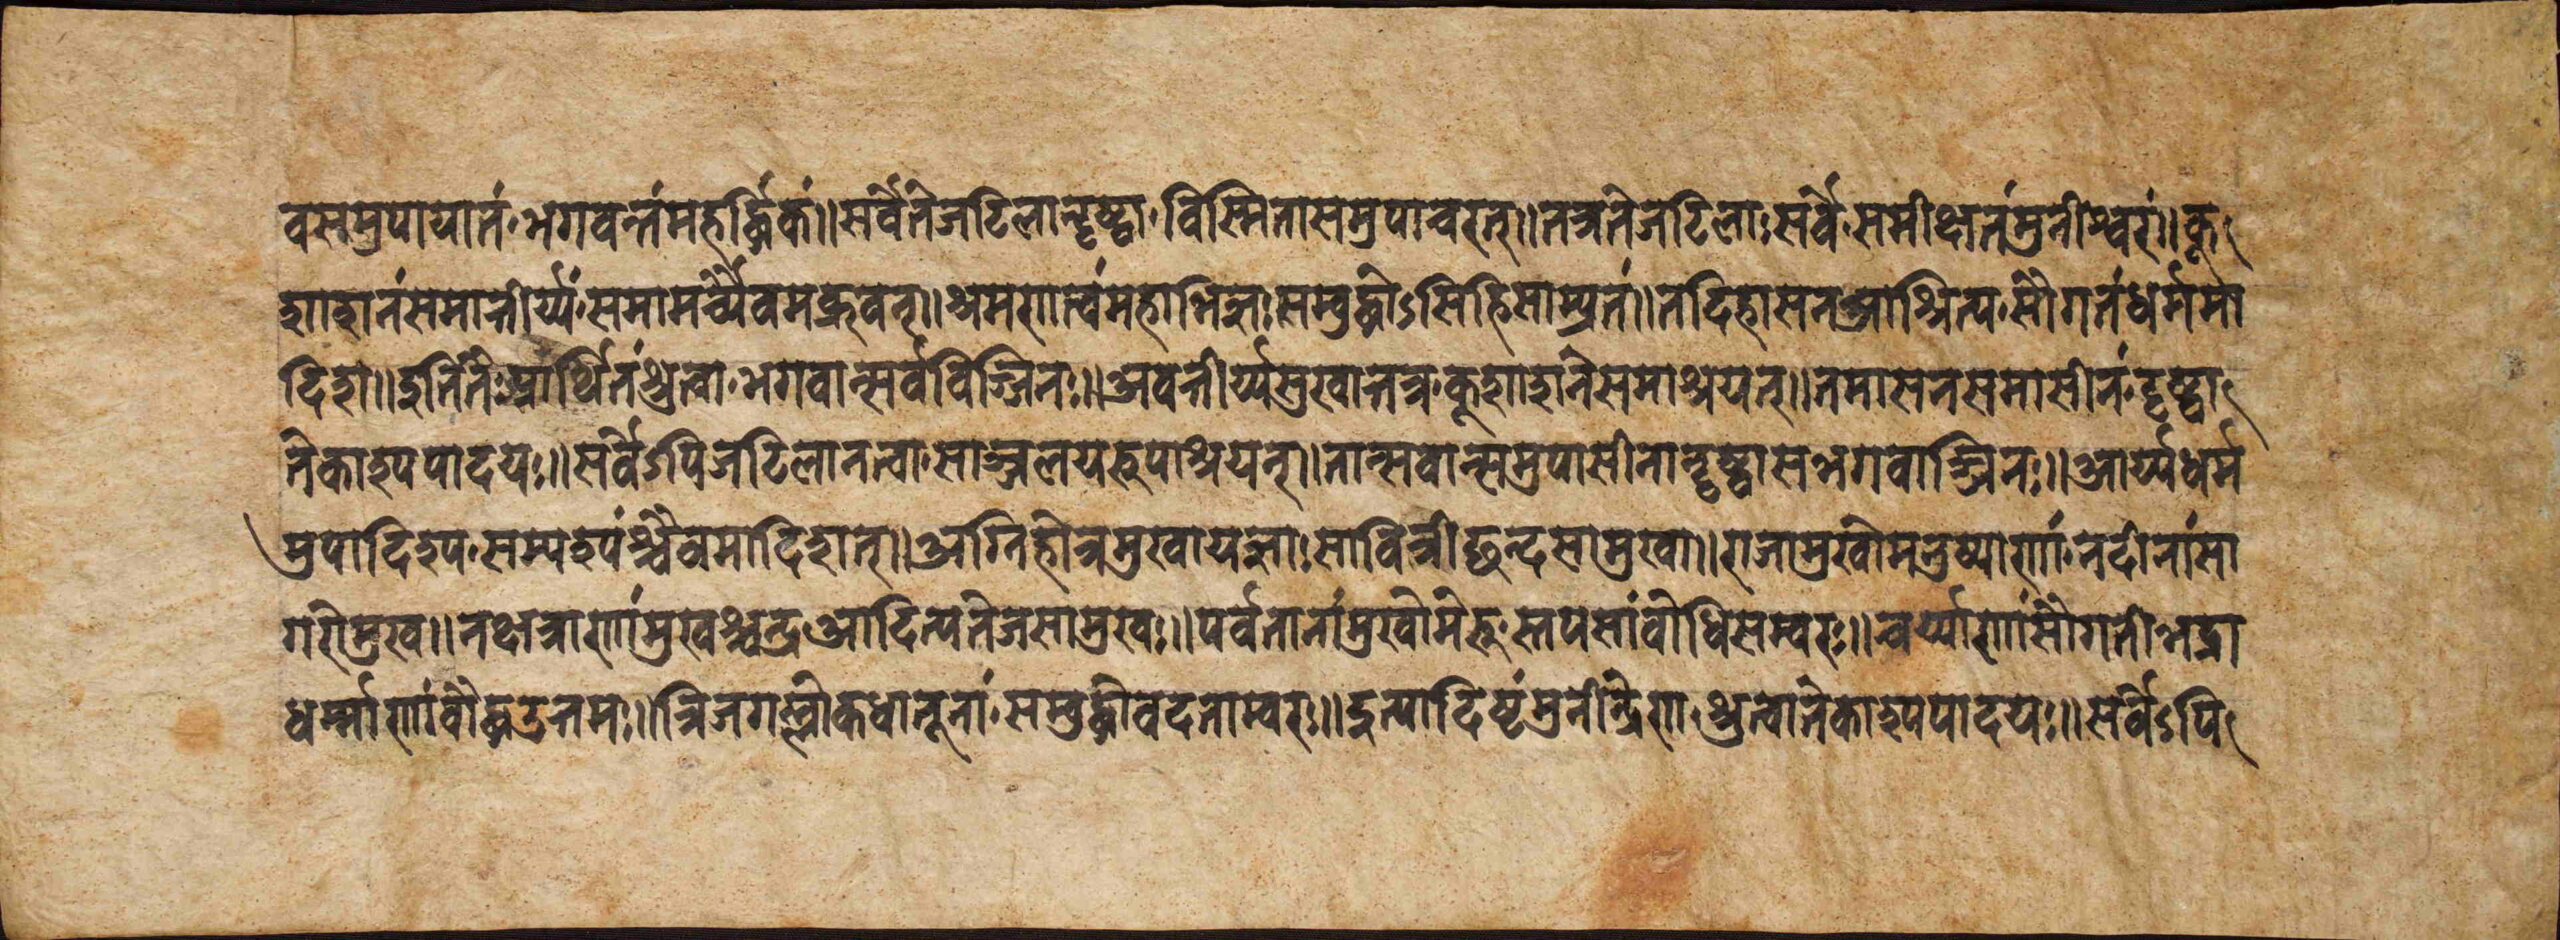 वसमुपायातं॰भगवन्तंमहर्द्धिकं॥सर्वेतेजटिलान्दृष्ट्वा॰विस्मितासमुपाचरन्॥तत्रतेजटिलाःसर्वे॰समीक्ष्यतंमुनीश्वरं॥कू
शाशनंसमास्तीर्य्य॰समामन्त्र्यैवमब्रुवन्॥श्रमणात्वंमहाभिज्ञःसम्बुद्धोऽसिहिसाम्प्रतं॥तदिहासनआश्रित्य॰सौगतंधर्ममा
दिश॥इतितैःप्रार्थितंश्रुत्वा॰भगवान्सर्वविज्जिनः॥अवतीर्य्यसुखात्तत्र॰कूशाशनेसमाश्रयत्॥तमासनसमासीनं॰दृष्ट्वा
तेकाश्यपादयः॥सर्वेऽपिजटिलानत्वा॰साञ्जलयरुपाश्रयन्॥तान्सर्वान्समुपासीनान्दृष्ट्वासभगवाञ्जिनः॥आर्य्यधर्म
मुपादिश्य॰सम्पश्यंश्चैवमादिशत्॥अग्निहोत्रमुखायज्ञाःसावित्रीछन्दसामुखा॥राजामुखोमनुष्याणां॰नदीनांसा
गरोमुख॥नक्षत्राणांमुखश्चन्द्रआदित्यतेजसामुखः॥पर्वतानांमुखोमेरु॰स्तपसांबोधिसम्वरः॥चर्य्याणांसौगतीभद्रा
धर्म्माणांबौद्धउत्तमः॥त्रिजगल्लोकधातूनां॰सम्बुद्धोवदताम्वरः॥इत्यादिष्टंमुनीन्द्रेण॰श्रुत्वातेकाश्यपादयः॥सर्वेऽपि